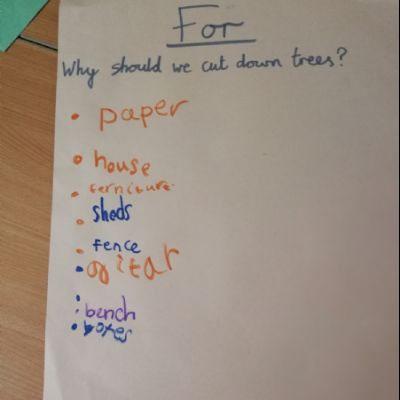 For
Why should we cut down trees?
• paper
• house
• ferniture
• sheds
• fence
• gitar
• bench
• boxes